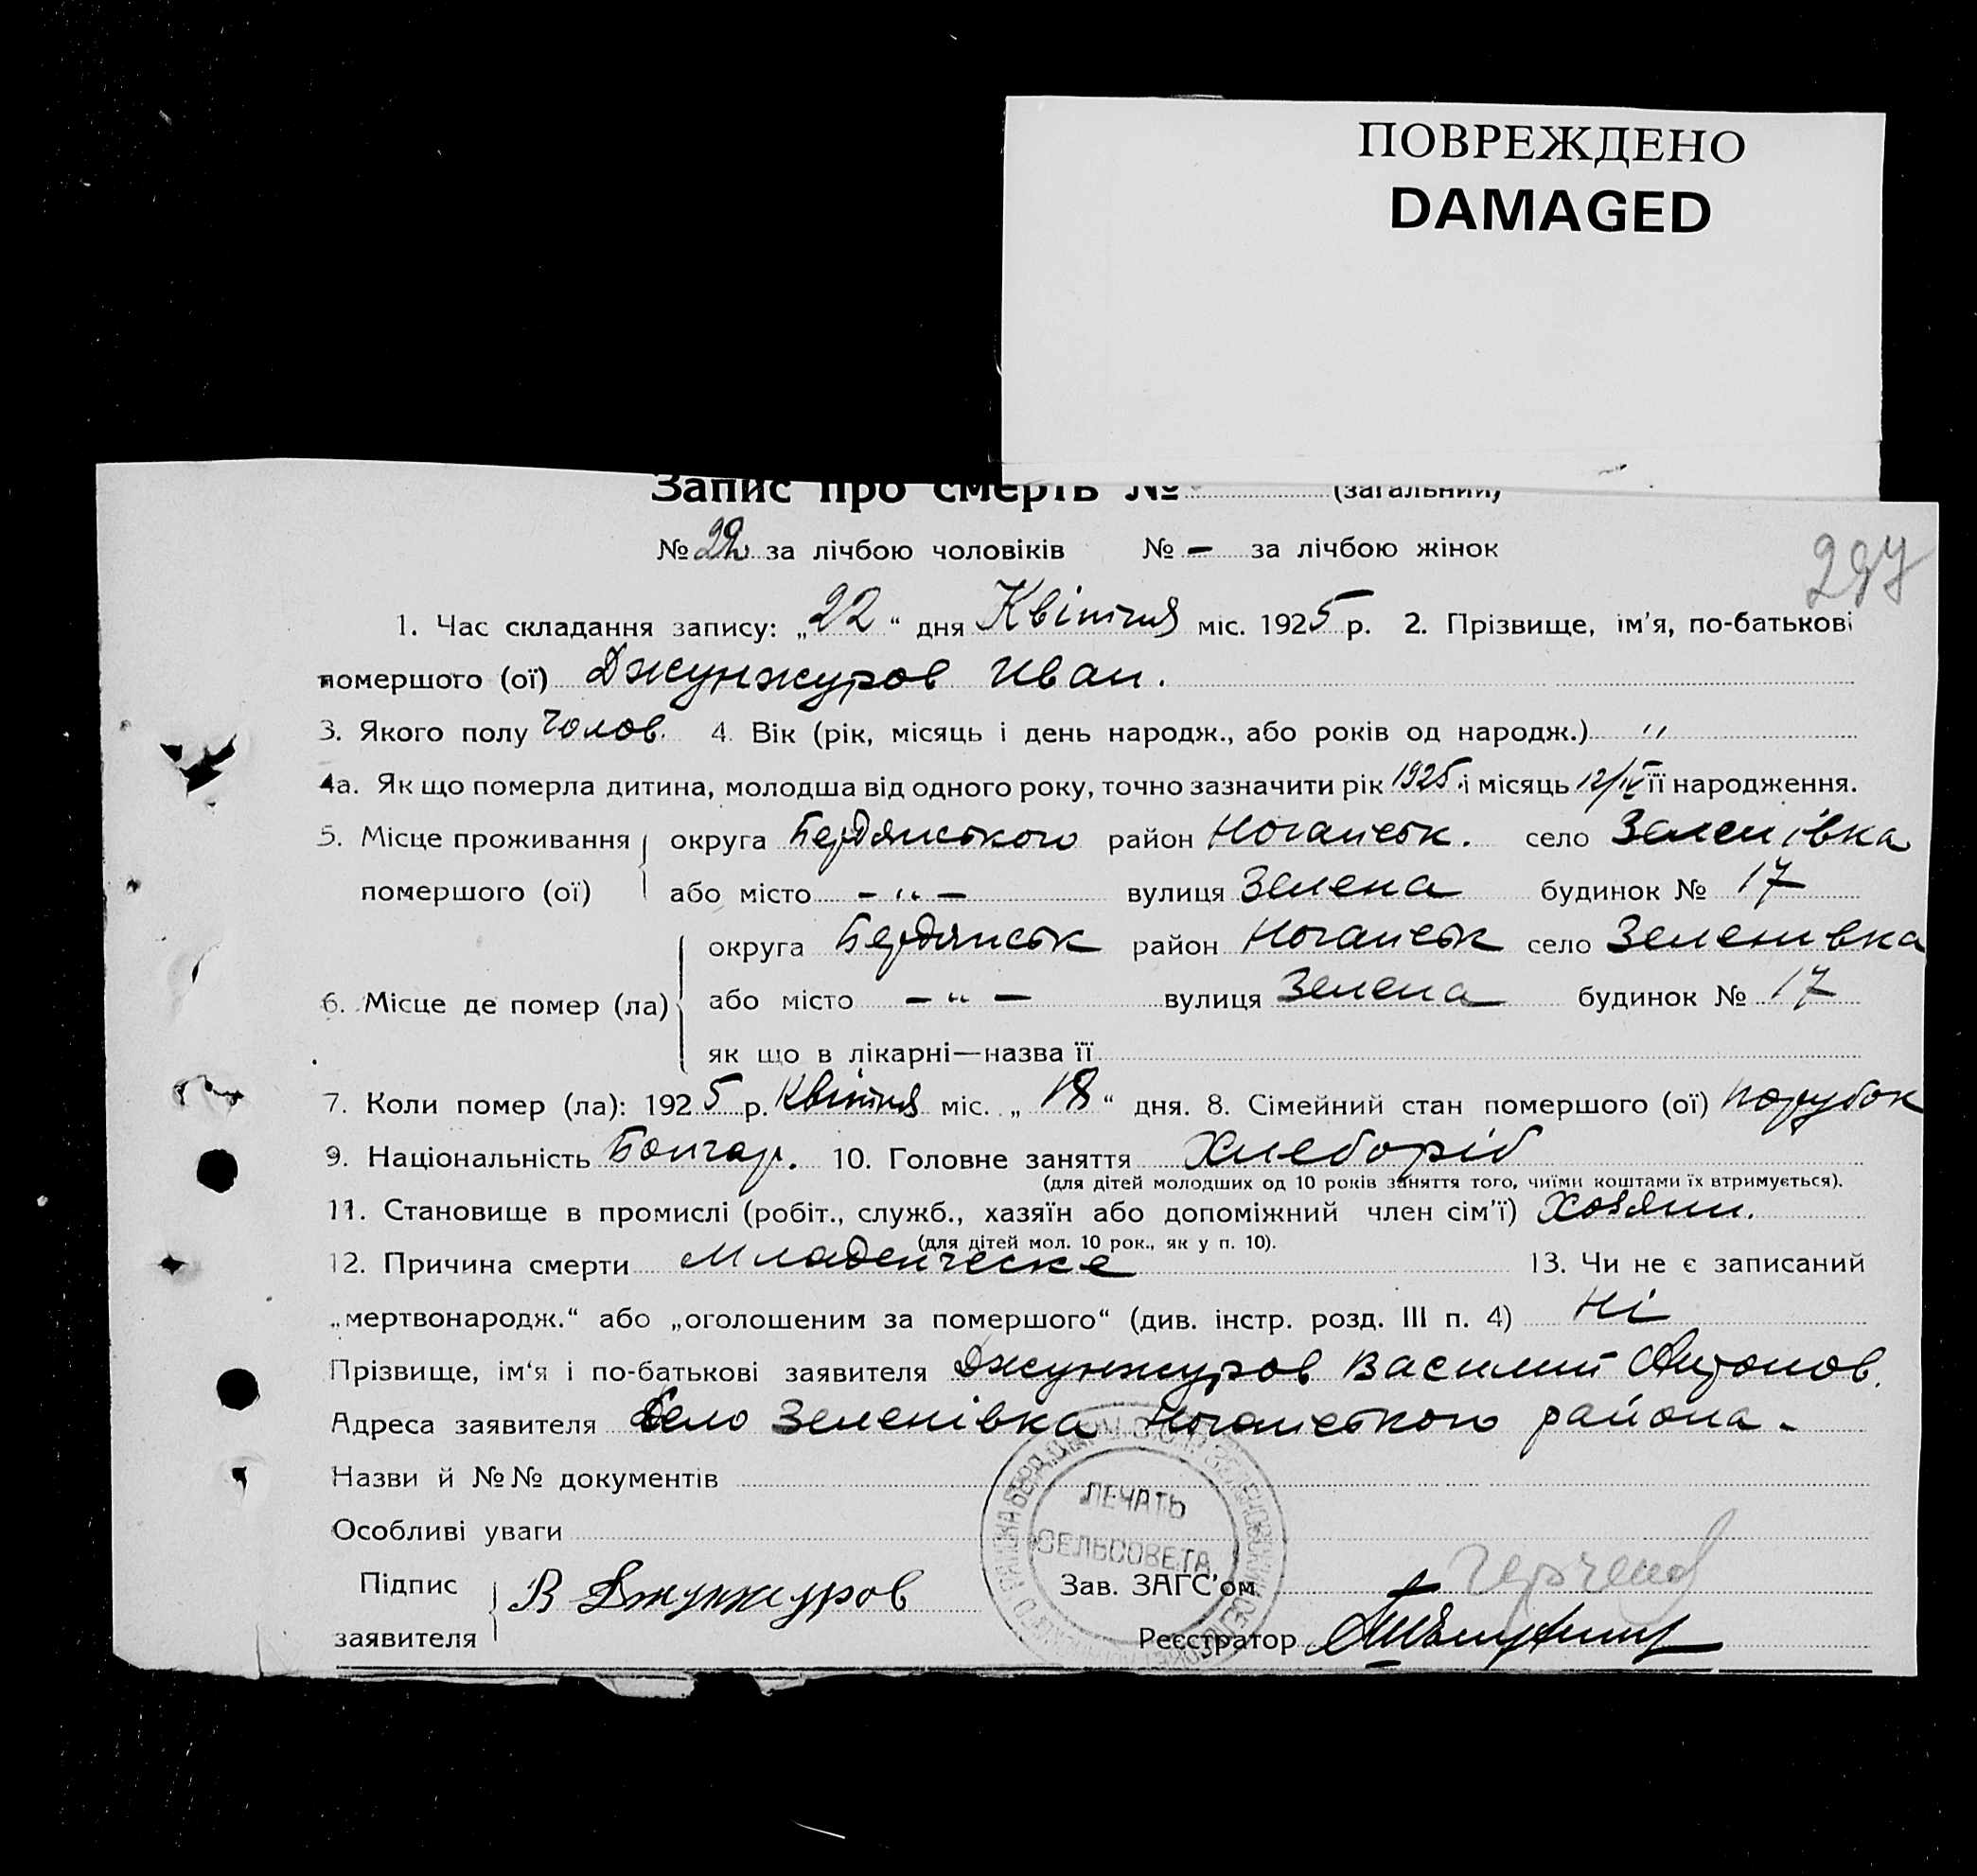 ПОВРЕЖДЕНО
DAMAGED
Запис про смерть № (загальний)
№ 22 за лічбою чоловіків № – за лічбою жінок
297
1. Час складання запису: „22“ дня Квітня міс. 1925 р. 2. Прізвище, ім’я, по-батькові
помершого (ої) Джунжуров Иван.
3. Якого полу Чолов. 4. Вік (рік, місяць і день народж., або років од народж.) "
4а. Як що померла дитина, молодша від одного року, точно зазначити рік 1925. і місяць 12/IV її народження.
5. Місце проживання округа Бердянського район Ногайськ. село Зеленівка
помершого (ої) або місто – " – вулиця Зелена будинок № 17
округа Бердянськ район Ногайськ село Зеленивка
6. Місце де помер (ла) або місто – " – вулиця Зелена будинок № 17
як що в лікарні—назва її
7. Коли помер (ла): 1925 р. Квітня міс. „18“ дня. 8. Сімейний стан помершого (ої) парубок
9. Національність Болгар. 10. Головне заняття Хлеборіб
(для дітей молодших од 10 років заняття того, чиїми коштами їх втримується).
11. Становище в промислі (робіт., служб., хазяїн або допоміжний член сім’ї) Хозяин.
(для дітей мол. 10 рок., як у п. 10).
12. Причина смерти Младенческе 13. Чи не є записаний
„мертвонародж.“ або „оголошеним за помершого“ (див. інстр. розд. III п. 4) Ні
Прізвище, ім‘я і по-батькові заявителя Джунжуров Василий Антонов.
Адреса заявителя Село Зеленівка Ногайського района –
Назви й №№ документів
Особливі уваги
ПЕЧАТЬ
СЕЛЬСОВЕТА
Підпис В Джунжуров Зав. ЗАГС’ом
заявителя Реєстратор